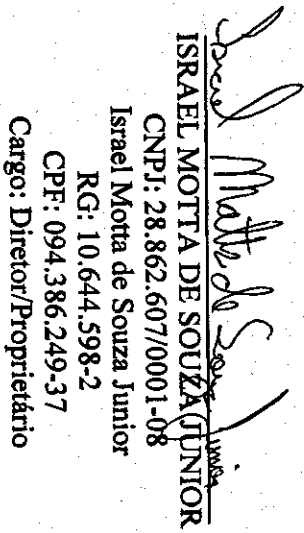 Israel Motta de Souza Junior
ISRAEL MOTTA DE SOUZA JUNIOR
CNPJ: 28.862.607/0001-08
Israel Motta de Souza Junior
RG: 10.644.598-2
CPF: 094.386.249-37
Cargo: Diretor/Proprietário